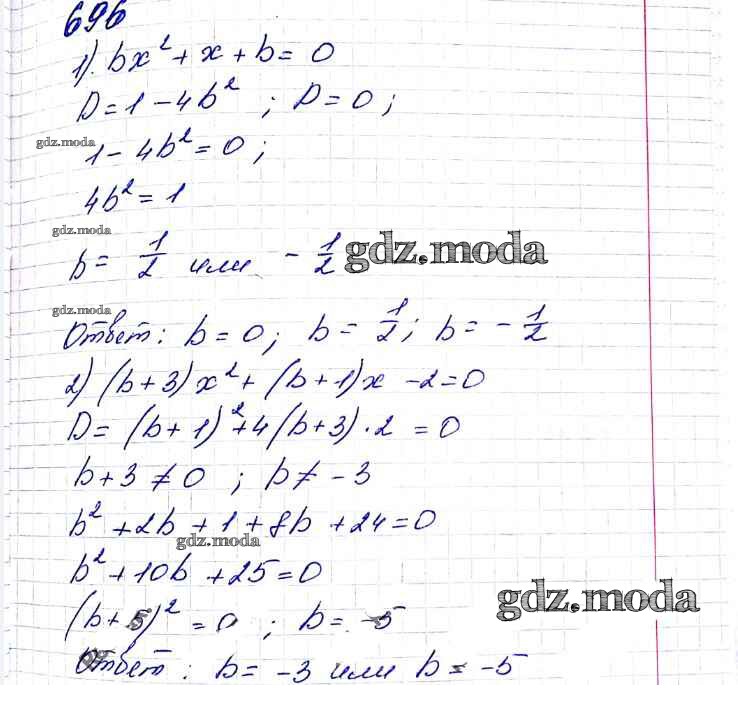 696
1). bx² + x + b = 0
D = 1 - 4b² ; D = 0 ;
gdz.moda
1 - 4b² = 0 ;
4b² = 1
gdz.moda
b = 1/2 или - 1/2
gdz.moda
gdz.moda
Ответ: b = 0; b = 1/2; b = - 1/2
2) (b + 3)x² + (b + 1)x - 2 = 0
D = (b + 1)² + 4(b + 3) · 2 = 0
b + 3 ≠ 0 ; b ≠ - 3
b² + 2b + 1 + 8b + 24 = 0
gdz.moda
b² + 10b + 25 = 0
gdz.moda
(b + 5)² = 0 ; b = -5
Ответ: b = -3 или b = -5